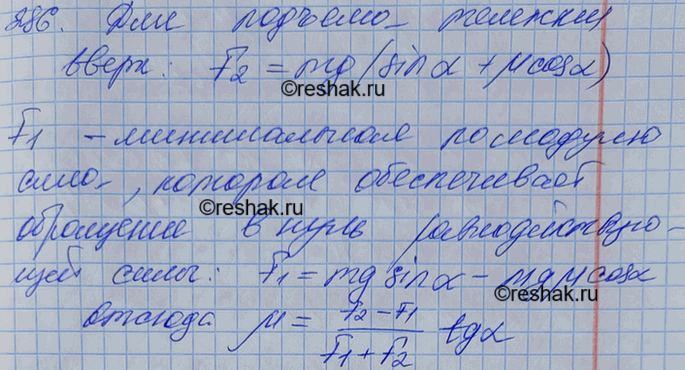 286. Для подъема тележки
вверх: F₂ = mg(sinα + μcosα)
©reshak.ru
F₁ – минимальная по модулю
сила, которая обеспечивает
©reshak.ru
обращение в нуль равнодействую-
щей силы: F₁ = mg sinα - mgμcosα
©reshak.ru
отсюда μ = (F₂ - F₁)/(F₁ + F₂) tgα